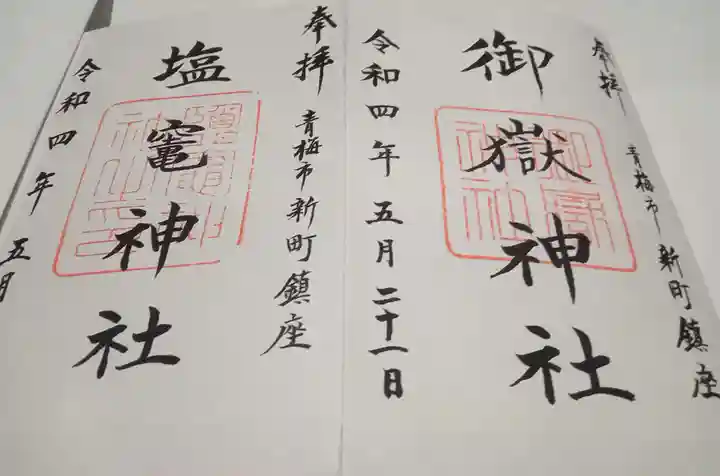 奉拝 青梅市新町鎮座
御嶽神社
令和四年五月二十一日
奉拝 青梅市新町鎮座
塩竈神社
令和四年五月